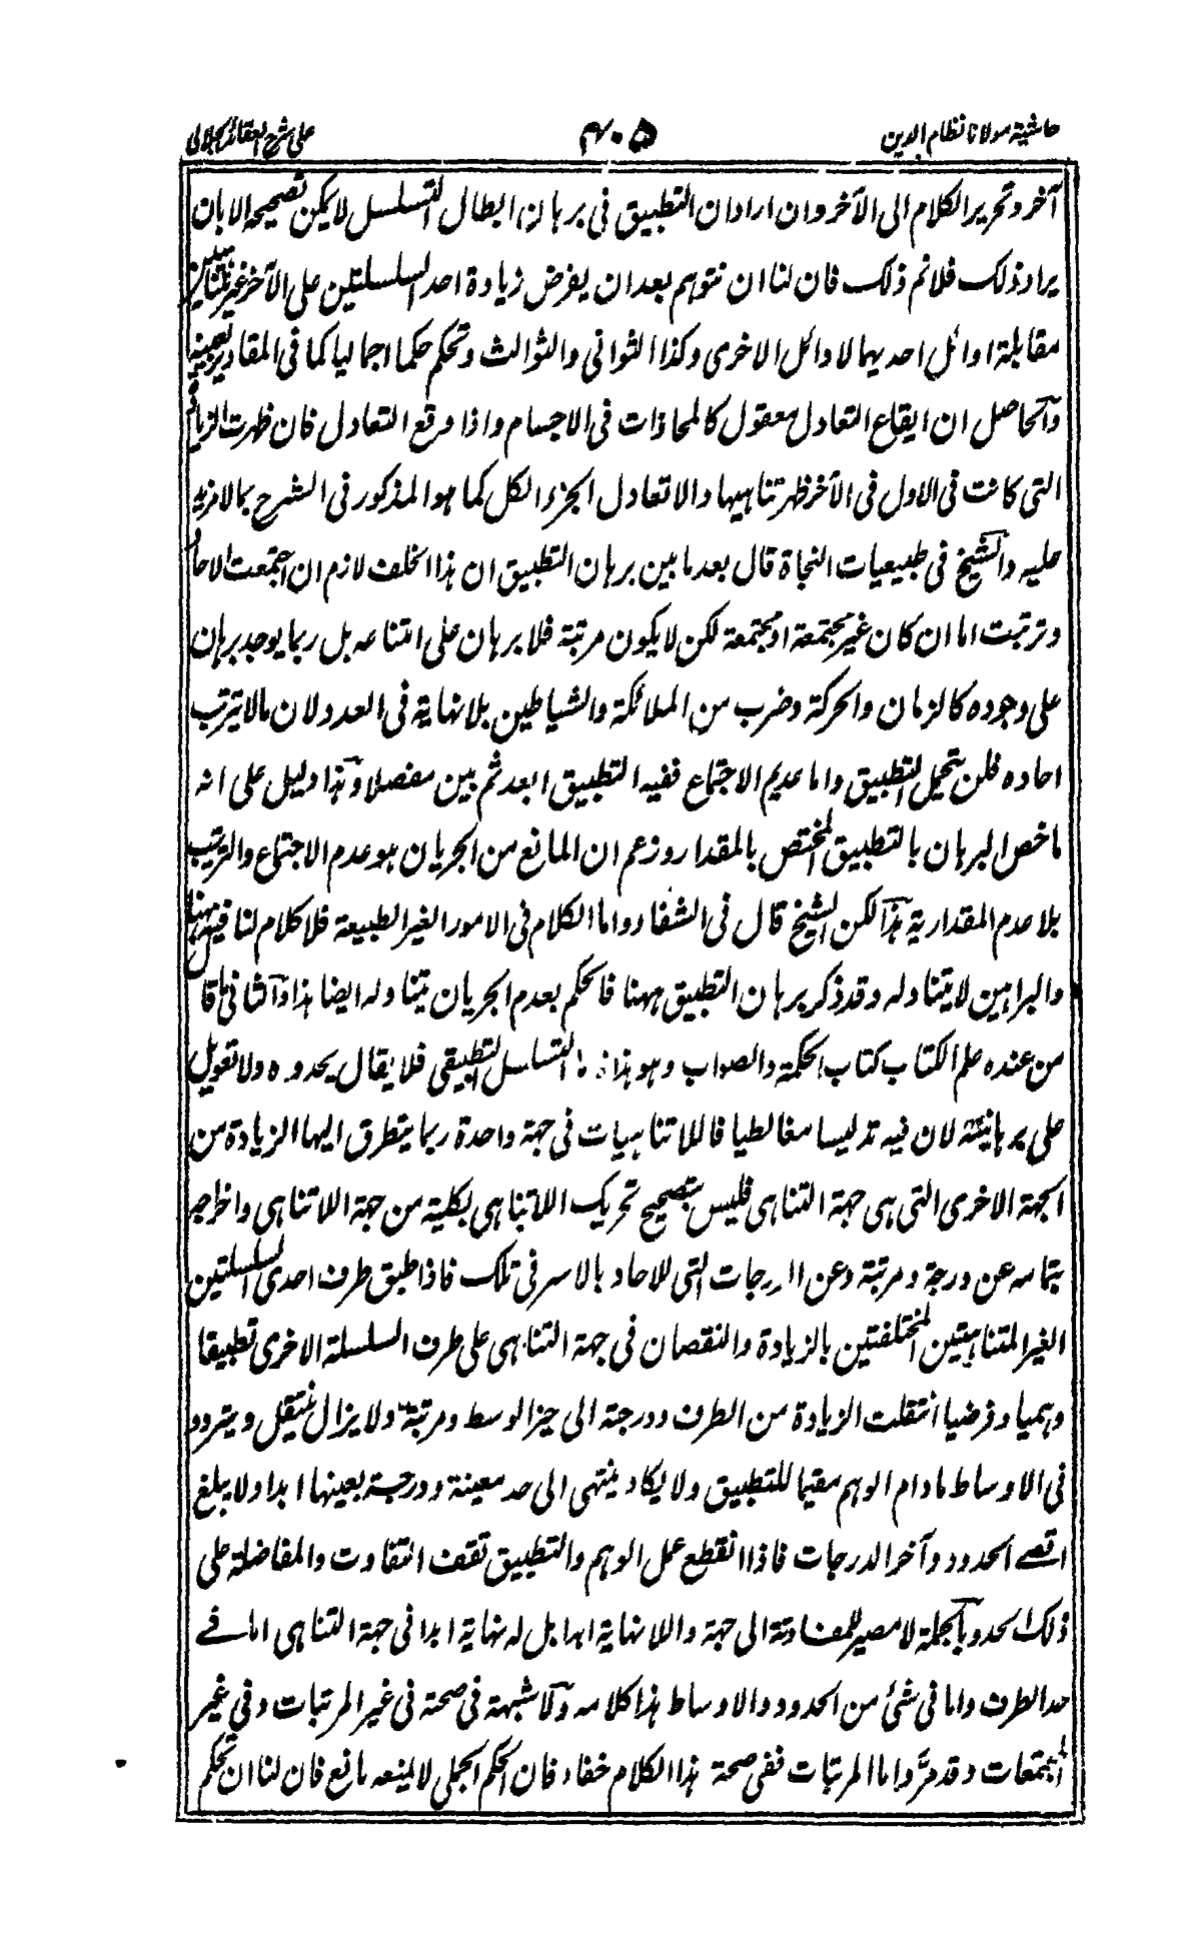 حاشية مولانا نظام الدين
۴۰۵
على شرح العقائد الجلالى
آخر وتحرير الكلام الى الآخر وان اراد ان التطبيق فى برهان ابطال التسلسل لا يمكن تصحيحه الا بان
يراد ذلك فلا نم ذلك فان لنا ان نتوهم بعد ان يفرض زيادة احد السلسلتين على الآخر غير متناهيتين
مقابلة اوائل احديهما لاوائل الاخرى وكذا الثوانى والثوالث ونحكم حكما اجماليا كما فى المقادير بعينه
والحاصل ان ايقاع التعادل معقول كالمحاذات فى الاجسام واذا وقع التعادل فان ظهرت الزيادة
التى كانت فى الاول فى الآخر ظهر تناهيها والا تعادل الجزء الكل كما هو المذكور فى الشرح بما لا مزيد
عليه والشيخ فى طبيعيات النجاة قال بعد ما بين برهان التطبيق ان هذا الخلف لازم ان اجتمعت الاحاد
وترتبت اما ان كان غير مجتمعة او مجتمعة لكن لا يكون مرتبة فلا برهان على امتناعه بل ربما يوجد برهان
على وجوده كالزمان والحركة وضرب من الملائكة والشياطين بلا نهاية فى العدد ولان ما لا يترتب
احاده فلن يتحمل التطبيق واما عديم الاجتماع ففيه التطبيق ابعد ثم بين مفصلا وهذا دليل على انه
ما خص البرهان بالتطبيق المختص بالمقدار وزعم ان المانع من الجريان هو عدم الاجتماع والترتيب
بلا عدم المقدارية هذا لكن الشيخ قال فى الشفاء واما الكلام فى الامور الغير الطبيعة فلا كلام لنا فيه ههنا
والبراهين لا يتناوله وقد ذكر برهان التطبيق ههنا فالحكم بعدم الجريان يتناوله ايضا هذا والثانى ما قال
من عنده علم الكتاب كتاب الحكمة والصواب وهو هذا التسلسل التطبيقى فلا يقال بحدوه ولا تعويل
على برهانيته لان فيه تدليسا مغالطيا فاللاتناهيات فى جهة واحدة ربما يتطرق اليها الزيادة من
الجهة الاخرى التى هى جهة التناهى فليس بتصحيح تحريك اللاتناهى بكلية من جهة اللاتناهى واخراجه
بتمامه عن درجة ومرتبة وعن الدرجات التى للاحاد بالاسر فى تلك فاذا طبق طرف احدى السلسلتين
الغير المتناهيتين المختلفتين بالزيادة والنقصان فى جهة التناهى على طرف السلسلة الاخرى تطبيقا
وهميا وفرضيا انتقلت الزيادة من الطرف ودرجته الى حيز الوسط ومرتبة ولا يزال ينتقل ويتردد
فى الاوساط ما دام الوهم مقيما للتطبيق ولا يكاد ينتهى الى حد معينة ودرجة بعينها ابدا ولا يبلغ
اقصے الحدود وآخر الدرجات فاذا انقطع عمل الوهم والتطبيق تقف التفاوت والمفاضلة على
ذلك الحد وبالجملة لا مصير للمفاوتة الى جهة واللانهاية ابدا بل له نهاية ابدا فى جهة التناهى اما فے
حد الطرف واما فى شئ من الحدود والاوساط هذا كلامه ولا شبهة فى صحة فى غير المرتبات وفى غير
المجتمعات وقد مرّ واما المرتبات ففى صحة هذا الكلام خفاء فان الحكم الجملى لا يمنعه مانع فان لنا ان نحكم